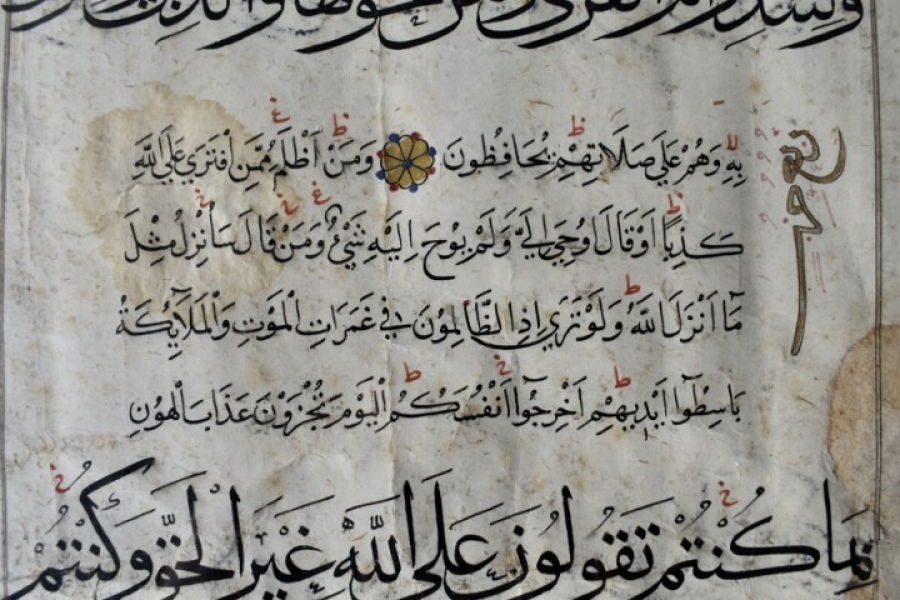 القرى ومن حولها والذين
بِهِ وَهُمْ عَلَى صَلَاتِهِمْ يُحَافِظُونَ وَمَنْ اَظْلَمُ مِمَّنِ افْتَرَى عَلَى اللهِ
كَذِبًا اَوْ قَالَ اُوحِيَ اِلَيَّ وَلَمْ يُوحَ اِلَيْهِ شَيْءٌ وَمَنْ قَالَ سَاُنْزِلُ مِثْلَ
مَآ اَنْزَلَ اللهُ وَلَوْ تَرَى اِذِ الظَّالِمُونَ فِي غَمَرَاتِ الْمَوْتِ وَالْمَلَآئِكَةُ
بَاسِطُوٓا اَيْدِيهِمْ اَخْرِجُوٓا اَنْفُسَكُمُ الْيَوْمَ تُجْزَوْنَ عَذَابَ الْهُونِ
بِمَا كُنْتُمْ تَقُولُونَ عَلَى اللهِ غَيْرَ الْحَقِّ وَكُنْتُمْ